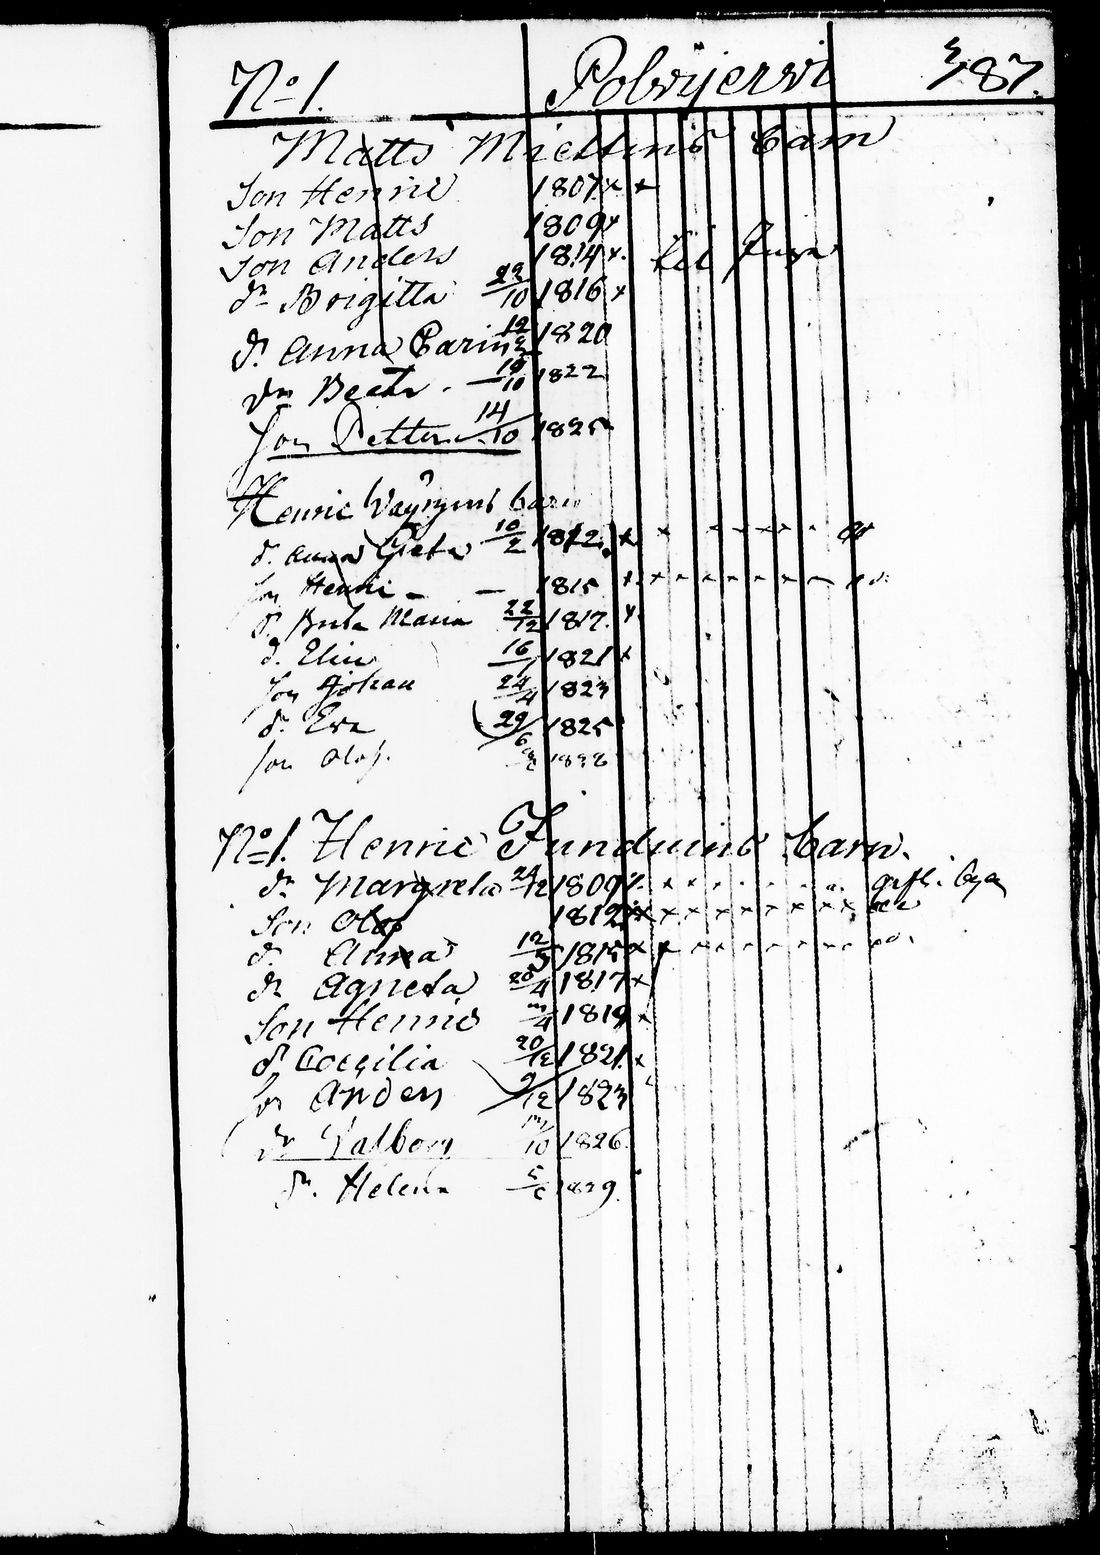 No 1. Polvijerwi 187.
Matts Miettins Barn
Son Henric 1807 x x
Son Matts 1809 x
Son Anders 1814 x. til
dr Brigitta 22/10 1816 x
dr. Anna Carin 12/2 1820
dr Beata. 10 1822
Son Petter 14/10 1825
Henric Väyrynens barn
d. Anna Greta 10/2 1812. x x
Son Henric - - 1815 x x
dr. Brita Maria 22/12 1817. x
d. Elin 16 1821 x
Son Johan 24/4 1823
dr. Eva 29/6 1825
Son Olof. 1828
No 1. Henric Turduinens barn.
dr Margreta 24/12 1809 x
Son Olof 1812 x x x x x x x x
dr Anna 12 1815 x x
dr Agneta 20/4 1817 x
Son Henric 4 1819 x
dr Coecilia 20/12 1821. x
Son Anders 9/12 1823
dr Valborg 10 1826.
dr. Helena 5 1829.